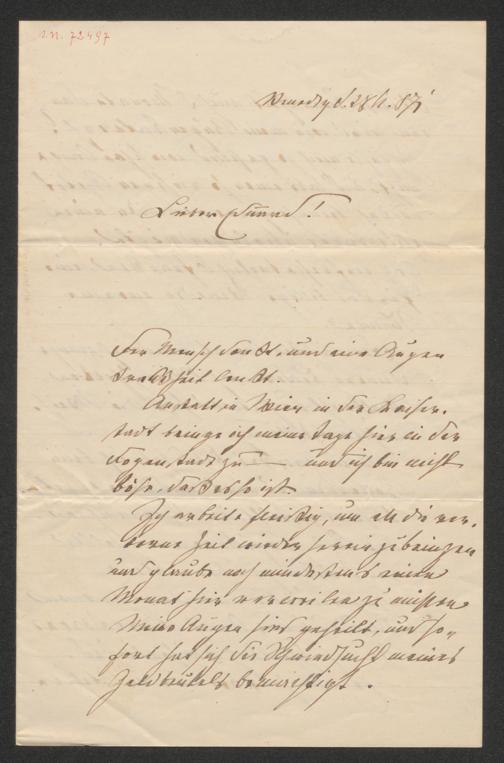 I.N. 72497
Venedig d. 28/1. 87
Lieber Freund!
Der Mensch denkt, und eine Augen
krankheit lenkt.
Anstatt in Wien in der Kaiser-
stadt bringe ich meine Tage hier in der
Dogenstadt zu — und ich bin nicht
böse, daß es so ist.
Ich arbeite fleißig, um all die ver-
lorne Zeit wieder herein zu bringen
und glaube noch mindestens einen
Monat hier verweilen zu müssen
Meine Augen sind geheilt, und so-
fort hat sich die Schwindsucht meines
Geldbeutels bemächtigt.